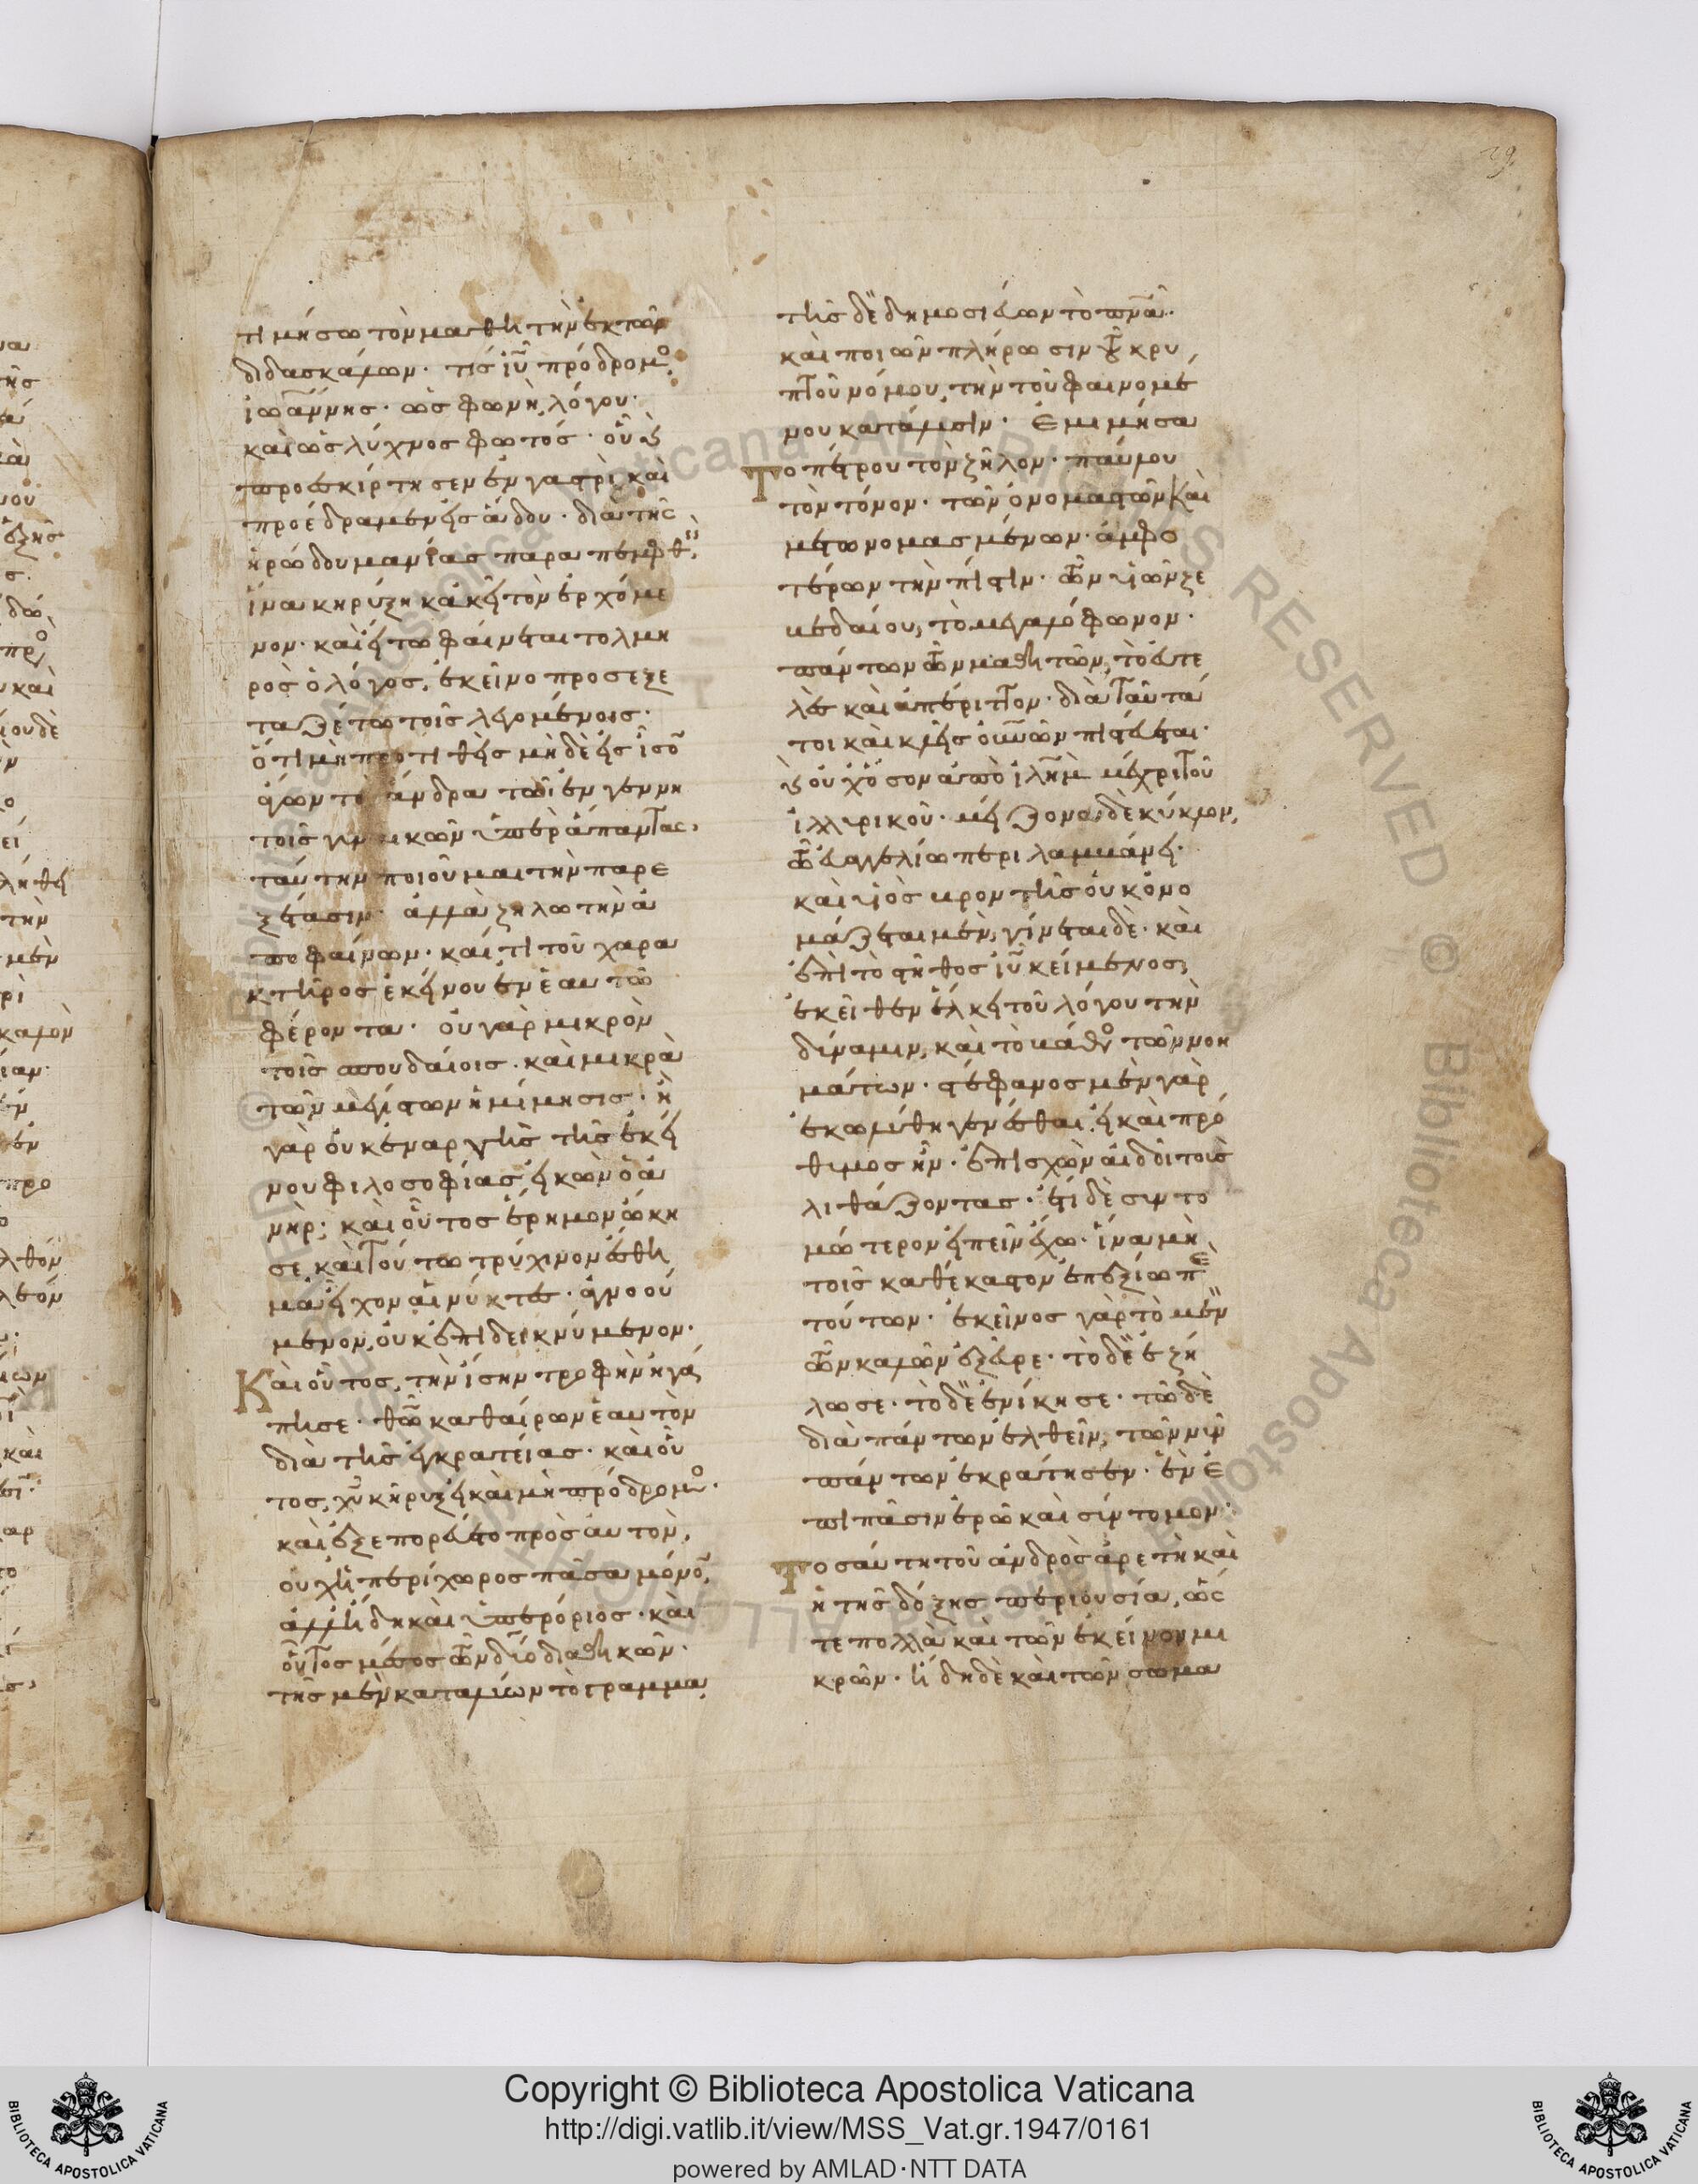 τιμήσω τὸν μαθητὴν ἐκ τῶν
διδασκάλων· τίς ἰῦ πρόδρομο
ἰωάννης· ὡς φωνὴ λόγου·
καὶ ὡς λύχνος φωτός· οὗ καὶ
προεσκίρτησεν ἐν γαστρὶ καὶ
προέδραμεν εἰς ἅδου· διὰ τῆς
ἡρώδου μανίας παραπεμφθεὶς,
ἵνα κηρύξῃ κἀκεῖ τὸν ἐρχόμε
νον· καὶ εἴ τω φαίνεται τολμη
ρὸς ὁ λόγος, ἐκεῖνο προσεξε
ταζέτω τοῖς λεγομένοις·
ὅτι μὴ προτιθεὶς μὴ δὲ εἰς ἴσον
ἄγων τὸν ἄνδρα τῶ ἐν γεννη
τοῖς γυναικῶν ὑπὲρ ἅπαντας,
ταύτην ποιοῦμαι τὴν παρε
ξέτασιν· ἀλλὰ ζηλωτὴν ἀ
ποφαίνων· καί τι τοῦ χαρα
κτῆρος ἐκείνου ἐν ἑαυτῶ
φέροντα· οὐ γὰρ μικρὸν
τοῖς σπουδαίοις· καὶ μικρὰ
τῶν μεγίστων ἡ μίμησις· ἢ
γὰρ οὐκ ἐναργὴς τῆς ἐκεί
νου φιλοσοφίας εἰκὼν ὁ ἀ
νήρ; καὶ οὗτος ἐρημον ώκη
σε καὶ τούτω τρύχινον ἐσθη
μα εἶχον αἱ νύκτες· ἀγνοού
μενον, οὐκ ἐπιδεικνύμενον·
Καὶ οὗτος, τὴν ἴσην τροφὴν ἠγά
πησε· θω καθαίρων ἑαυτὸν
διὰ τῆς ἐγκρατείας· καὶ οὗ
τος, χυ κήρυξ εἰ καὶ μὴ πρόδρομο·
καὶ ἐξεπορεύετο πρὸς αὐτὸν,
οὐχ ἡ περίχωρος πᾶσα μόνον,
ἀλλ' ἤδη καὶ ὑπερόριος· καὶ
οὗτος μέσος τῶν δύο διαθηκῶν·
τῆς μὲν καταλύων τὸ γράμμα,
τῆς δὲ δημοσιεύων τὸ πνα·
καὶ ποιῶν πλήρωσιν τοῦ κρυ
πτοῦ νόμου, τὴν τοῦ φαινομέ
νου κατάλυσιν· Ἐμιμήσα
το πέτρου τὸν ζῆλον· παύλου
τὸν τόνον· τῶν ὀνομαστῶν καὶ
μετωνομασμένων· ἀμφο
τέρων τὴν πίστιν· τῶν υἱῶν ζε
βεδαίου, τὸ μεγαλόφωνον·
πάντων τῶν μαθητῶν, τὸ εὐτε
λὲς καὶ ἀπέριττον· διὰ ταῦτά
τοι καὶ κλεῖς οὐνῶν πιστεύεται·
καὶ οὐχ ὅσον ἀπὸ ἱλημ μέχρι τοῦ
ἰλλυρικοῦ· μείζονα δὲ κύκλον,
τῶ εὐαγγελίω περιλαμβάνει·
καὶ υἱὸς βροντῆς οὐκ ὀνο
μάζεται μὲν, γίνεται δὲ· καὶ
ἐπὶ τὸ στῆθος ἰῦ κείμενος,
ἐκεῖθεν ἕλκει τοῦ λόγου τὴν
δύναμιν, καὶ τὸ βάθο τῶν νοη
μάτων· στέφανος μὲν γὰρ
ἐκωλύθη γενέσθαι, εἰ καὶ πρό
θυμος ἦν· ἐπισχὼν αἰδοῖ τοὺς
λιθάζοντας· ἔτι δὲ συντο
μώτερον εἰπεῖν ἔχω· ἵνα μὴ
τοῖς καθέκαστον ἐπεξίω πε
τούτων· ἐκεῖνος γὰρ τὸ μὲν
τῶν καλῶν ἐξεῦρε· τὸ δὲ ἐζή
λωσε· τὸ δὲ ἐνίκησε· τῶ δὲ
διὰ πάντων ἐλθεῖν, τῶν νῦν
πάντων ἐκράτησεν· ἓν ἐ
πὶ πᾶσιν ἐρῶ καὶ σύντομον·
Τοσαύτη τοῦ ἀνδρὸς ἀρετὴ καὶ
ἡ τῆς δόξης περιουσία, ὥς
τε πολλὰ καὶ τῶν ἐκείνου μι
κρῶν· ἤδη δὲ καὶ τῶν σωμα
Copyright © Biblioteca Apostolica Vaticana
http://digi.vatlib.it/view/MSS_Vat.gr.1947/0161
powered by AMLAD·NTT DATA